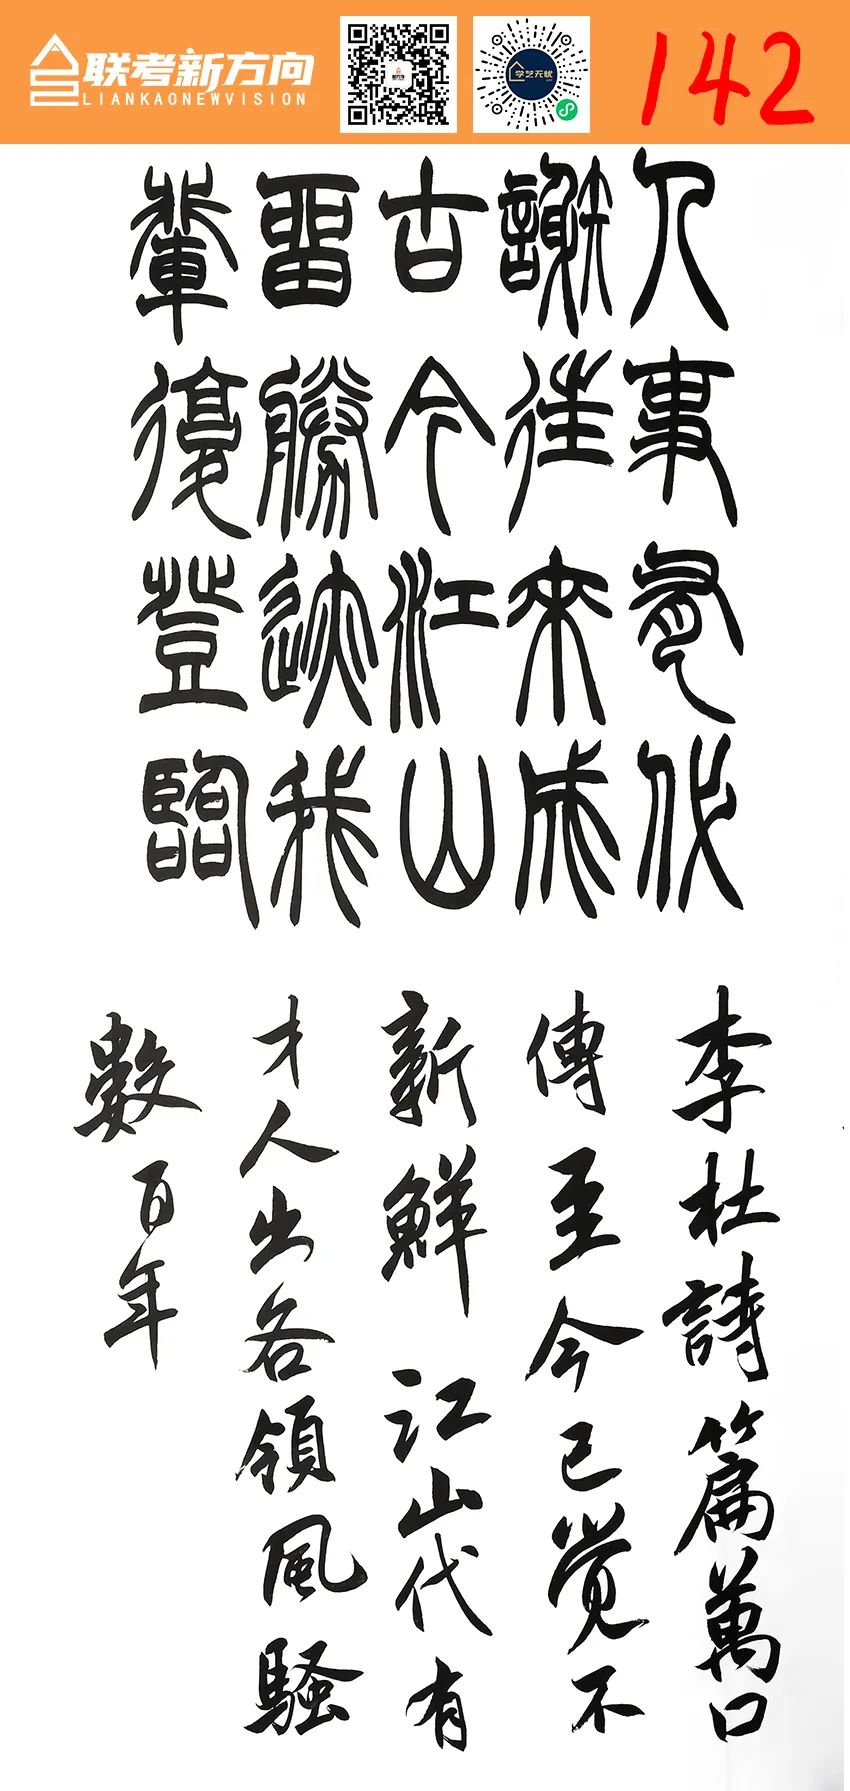 联考新方向
LIANKAONEWVISION
学艺无忧
142
人事有代
謝往来成
古今江山
留勝迹我
輩復登臨
李杜詩篇萬口
傳至今已觉不
新鮮江山代有
才人出各領風騷
數百年